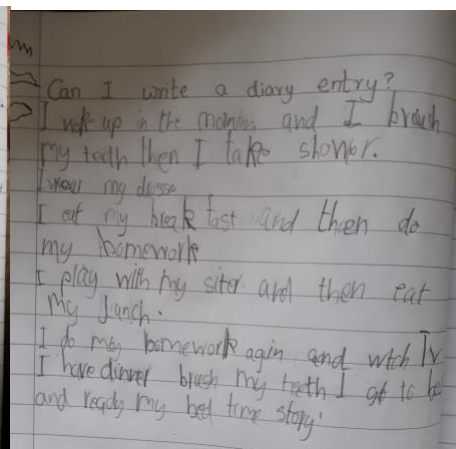 Can I write a diary entry?
I wok up in the morning and I brush
my teath then I take shower.
I wear my dusse
I eat my break fast and then do
my homework
I play with my siter and then eat
my lunch.
I do my homework agin and wtch Tv
I have dinner brush my teath I go to be
and ready my bed time story.